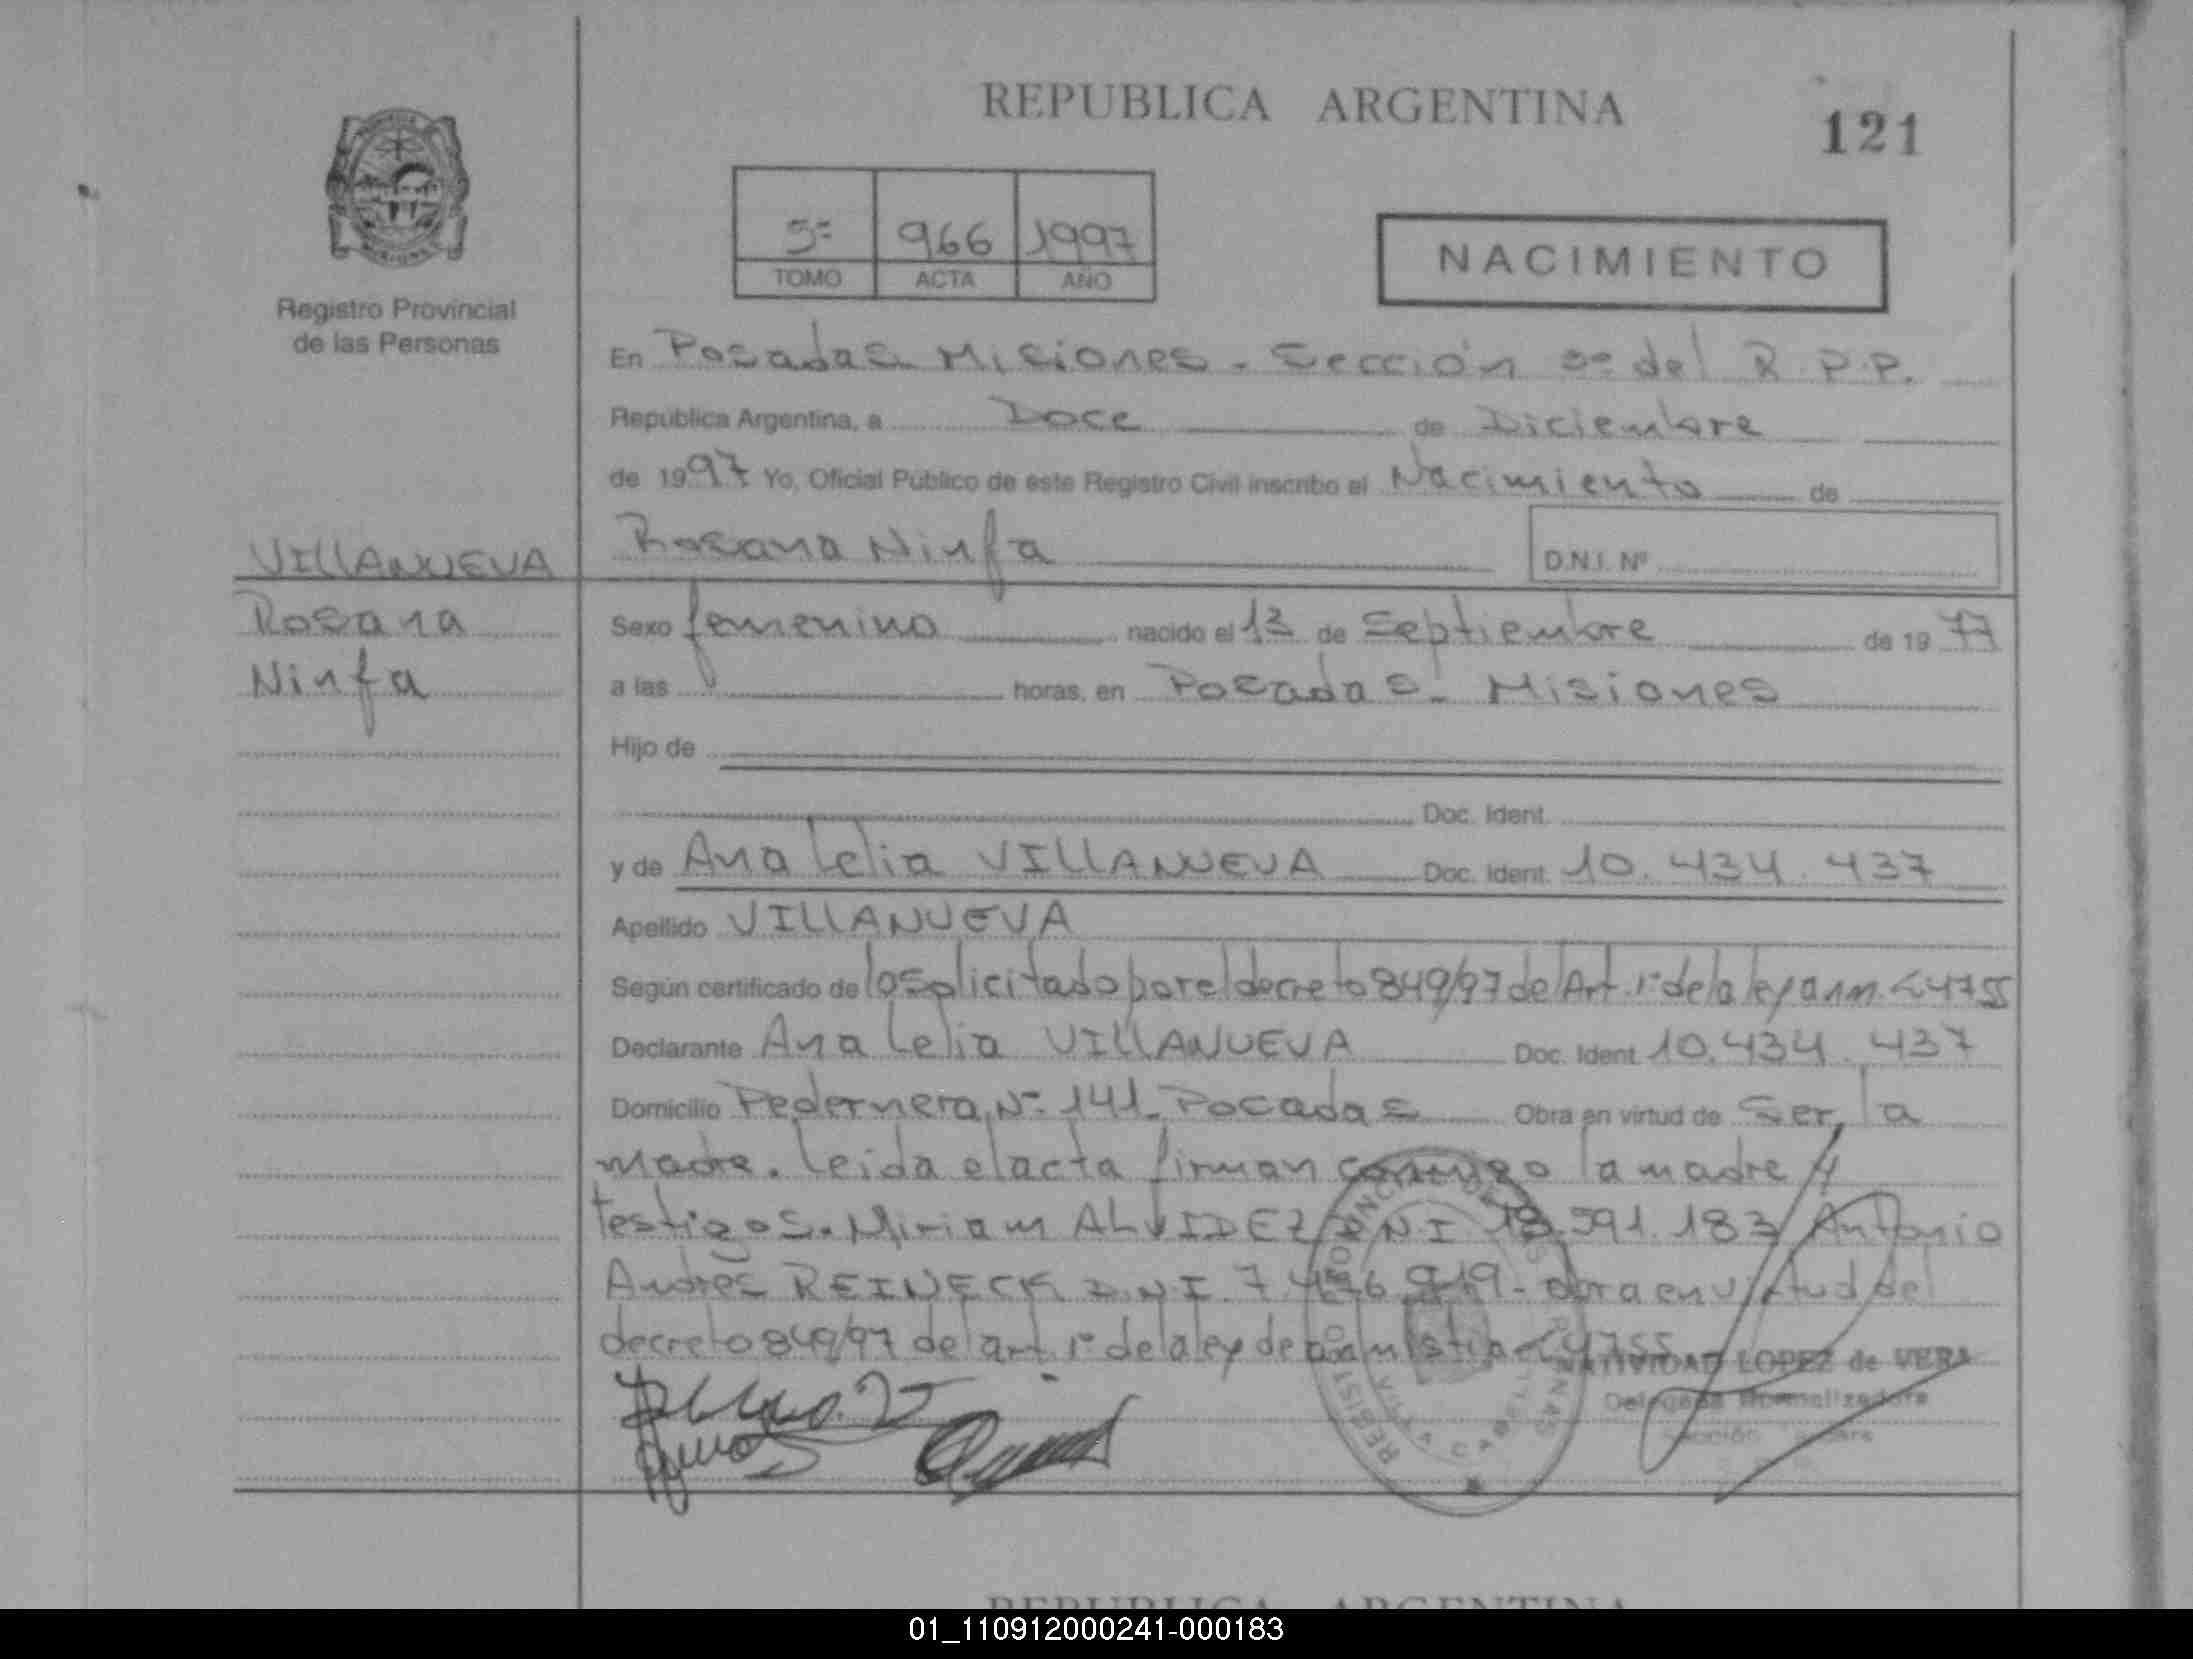 REPUBLICA ARGENTINA
121
5º 966 1997
TOMO ACTA AÑO
NACIMIENTO
Registro Provincial
de las Personas
En Posadas Misiones - Sección del R.P.P.
República Argentina, a Doce de Diciembre
de 1997 Yo, Oficial Público de este Registro Civil inscribo el Nacimiento de
Rosana Ninfa D.N.I. Nº
VILLANUEVA
Rosana
Ninfa
Sexo femenino nacido el 13 de Septiembre de 1977
a las horas, en Posadas - Misiones
Hijo de
Doc. Ident.
y de Ana Lelia VILLANUEVA Doc. Ident. 10.434.437
Apellido VILLANUEVA
Según certificado de lo solicitado por el decreto 849/97 del Art. 1º de la ley 24755
Declarante Ana Lelia VILLANUEVA Doc. Ident. 10.434.437
Domicilio Pedernera Nº 141 - Posadas Obra en virtud de ser la
madre. Leida el acta firman conmigo la madre y
testigos. Miriam ALVIDEZ D.N.I 591.183 Antonio
Andrés REINECK D.N.I. 7.476.919 - obra en virtud del
decreto 849/97 del art. 1º de la ley de amnistia 24755
NATIVIDAD LOPEZ de VERA
Delegada Normalizadora
Sección
REPUBLICA ARGENTINA
01_110912000241-000183